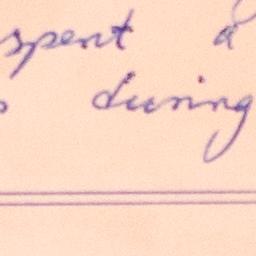 spent a
during